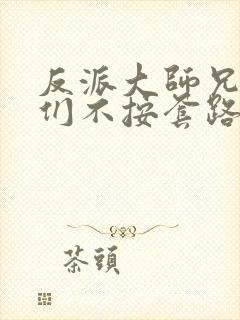 反派大師兄
们不按套路
茶頭